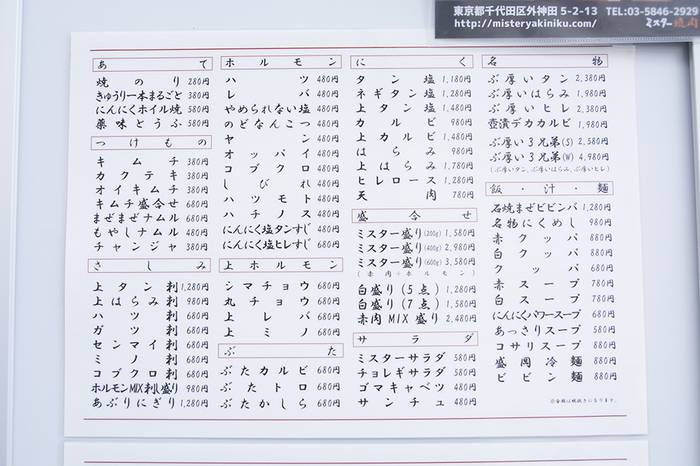 東京都千代田区外神田 5-2-13 ☎03-5846-2929
http://misteryakiniku.com/ ミスター焼肉
あて
焼のり 280円
きゅうり一本まるごと 380円
にんにくホイル焼 580円
薬味とうふ 580円
つけもの
キムチ 380円
カクテキ 380円
オイキムチ 380円
キムチ盛合せ 680円
まぜまぜナムル 680円
もやしナムル 480円
チャンジャ 380円
さしみ
上タン刺 1,280円
上はらみ刺 980円
ハツ刺 680円
ガツ刺 680円
センマイ刺 680円
ミノ刺 680円
コブクロ刺 680円
ホルモンMIX刺し盛り 980円
あぶりにぎり 1,280円
ホルモン
ハツ 480円
レバ 480円
やめられない塩 480円
のどなんこつ 480円
ヤン 480円
オッパイ 480円
コブクロ 480円
しびれ 480円
ハツモト 480円
ハチノス 480円
にんにく塩タンすじ 480円
にんにく塩ヒレすじ 680円
上ホルモン
シマチョウ 680円
丸チョウ 680円
上レバ 680円
上ミノ 680円
ぶた
ぶたカルビ 680円
ぶたトロ 680円
ぶたかしら 680円
にく
タン塩 1,180円
ネギタン塩 1,280円
上タン塩 1,480円
カルビ 980円
上カルビ 1,480円
はらみ 980円
上はらみ 1,780円
ヒレロース 1,280円
天肉 780円
盛合せ
ミスター盛り(200g) 1,580円
ミスター盛り(400g) 2,980円
ミスター盛り(600g) 3,580円
(赤肉+ホルモン)
白盛り(5点) 1,280円
白盛り(7点) 1,580円
赤肉MIX盛り 2,480円
サラダ
ミスターサラダ 580円
チョレギサラダ 580円
ゴマキャベツ 480円
サンチュ 480円
名物
ぶ厚いタン 2,380円
ぶ厚いはらみ 1,980円
ぶ厚いヒレ 2,380円
壺漬デカカルビ 1,980円
ぶ厚い3兄弟(S) 2,580円
ぶ厚い3兄弟(W) 4,980円
(ぶ厚いタン、ぶ厚いはらみ、ぶ厚いヒレ)
飯・汁・麺
石焼まぜビビンバ 1,280円
名物にくめし 980円
赤クッパ 880円
白クッパ 880円
クッパ 680円
赤スープ 780円
白スープ 780円
にんにくパワースープ 680円
あっさりスープ 580円
コサリスープ 880円
盛岡冷麺 880円
ビビン麺 880円
※金額は税抜きになります。